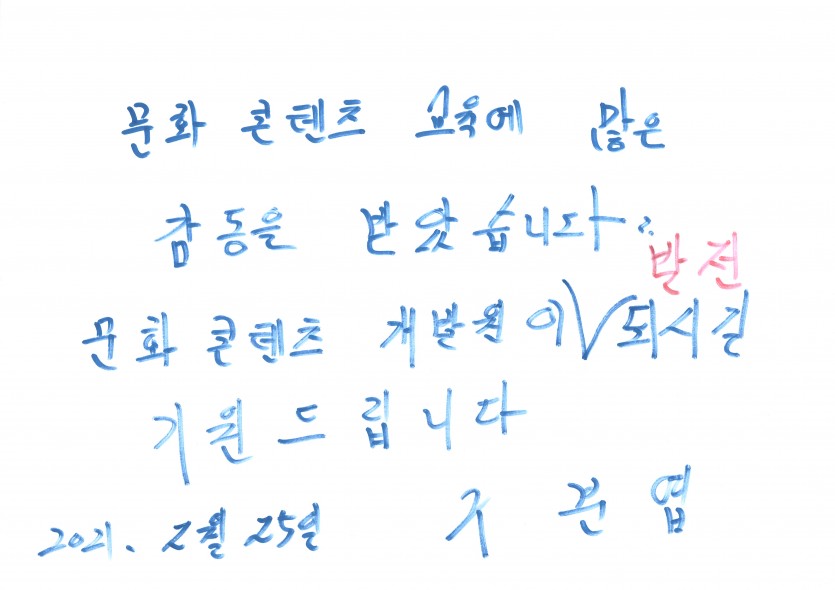 문화 콘텐츠 교육에 많은
감동을 받았습니다.
발전
문화 콘텐츠 개발원이 되시길
기원드립니다
2021. 2월 25일 구 본 엽